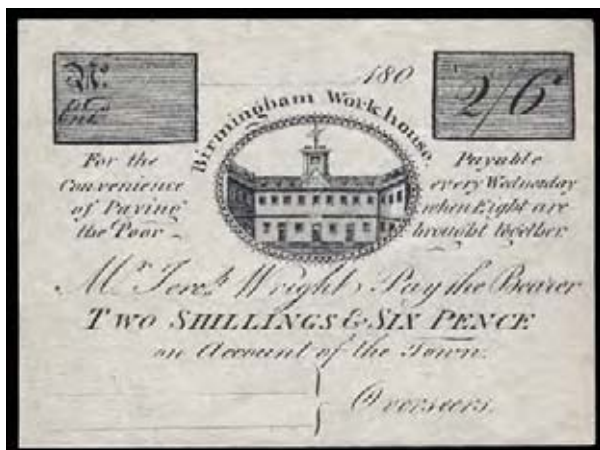 No.
Entd.
180
2/6
Birmingham Workhouse.
For the
Convenience
of Paying
the Poor
Payable
every Wednesday
when Eight are
brought together
Mr. Jereh. Wright, Pay the Bearer
TWO SHILLINGS & SIX PENCE
on Account of the Town.
Overseers.